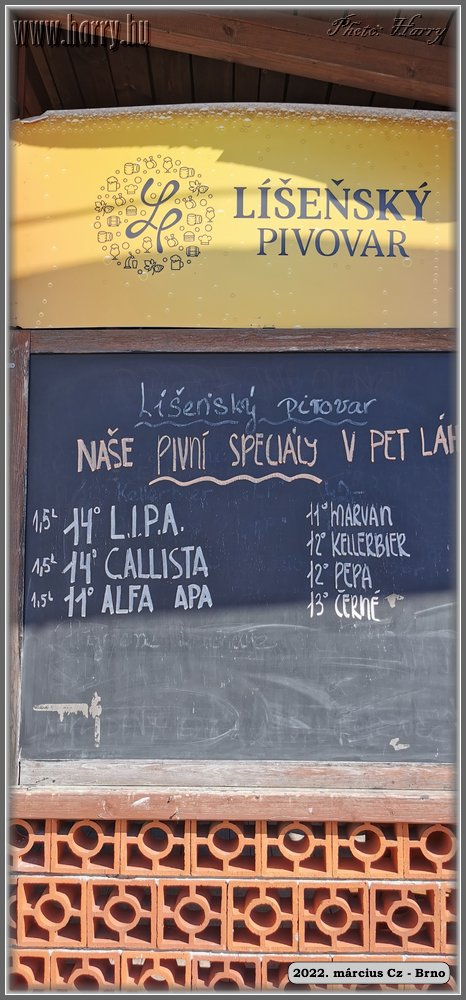 www.horry.hu
Photo: Horry
LÍŠEŇSKÝ
PIVOVAR
Líšeňský pivovar
NAŠE PIVNÍ SPECIÁLY V PET LÁH
1,5L 14° L.I.P.A.
1,5L 14° CALLISTA
1,5L 11° ALFA APA
11° MARVAN
12° KELLERBIER
12° PEPA
13° ČERNÉ
2022. március Cz - Brno